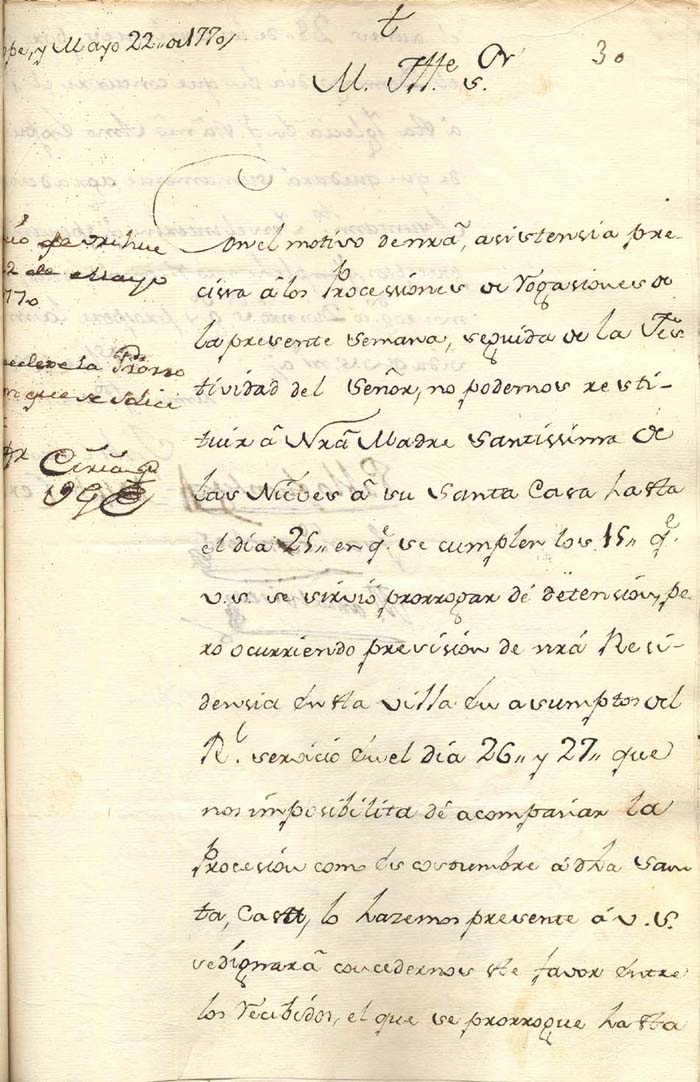 y Mayo 22,, de 1770,
t
M. Itte. Sor.
30
Con el motivo de nrâ, asistensia pre-
cissa â los Processiones de Rogasiones de
la presente semana, seguida de la Fes
tividad del Señor, no podemos resti-
tuir â Nrâ Madre Santissima de
las Nieves â su Santa Casa hasta
el dia 25,, en qe. se cumplen los 15,, qe.
v.s. se sirvió prorrogar de detension, pe
ro ocurriendo previsión de nrâ Resi-
densia en sta villa en asumptos del
Rl. servicio en el dia 26,, y 27,, que
nos imposibilita de acompañar la
Procesión como es costumbre â dha San
ta, Casa, lo hazemos presente â v.s.
se dignarâ concedernos ste favor entre
los recibidos, el que se prorrogue hasta
2 de Mayo
770
la Prorro
que se solici